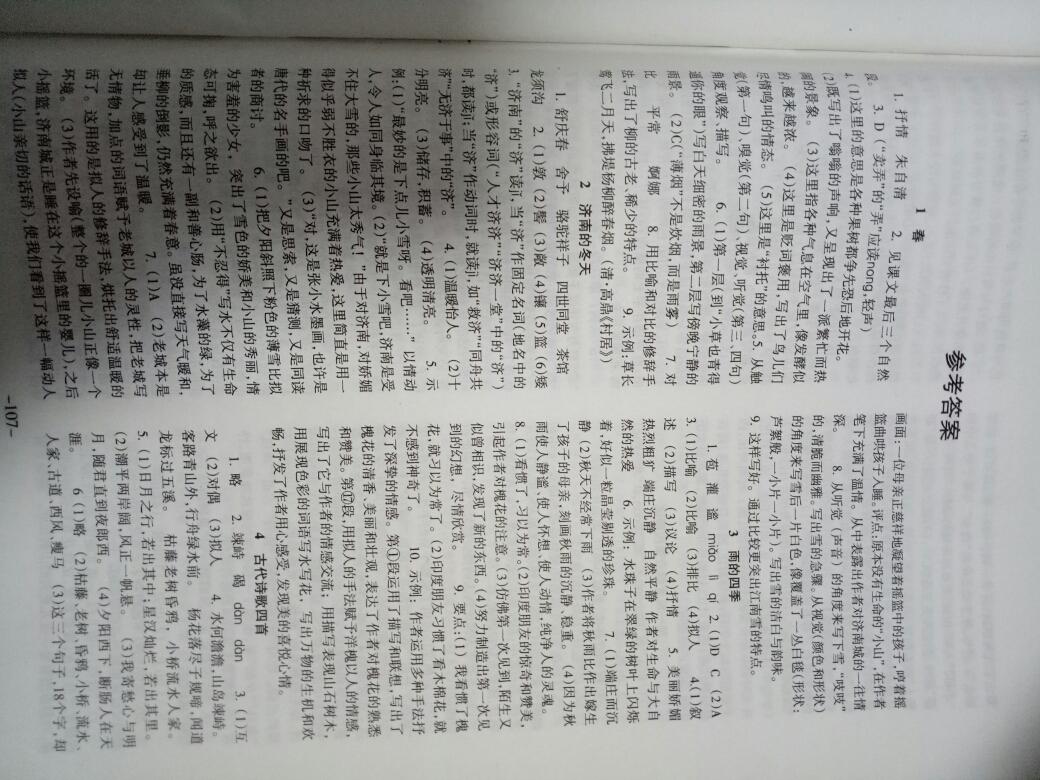 参考答案
1 春
1. 抒情 朱自清 2. 见课文最后三个自然
段。 3. D(“卖弄”的“弄”应读nòng,轻声)
4. (1)这里的意思是各种果树都争先恐后地开花。
(2)既写出了嗡嗡的声响,又呈现出了一派繁忙而热
闹的景象。 (3)这里指各种气息在空气里,像发酵似
的,越来越浓。 (4)这里是贬词褒用,写出了鸟儿们
尽情鸣叫的情态。 (5)这里是“衬托”的意思。5. 从触
觉(第一句)、嗅觉(第二句)、视觉、听觉(第三、四句)
角度观察、描写。 6. (1)第一层(到“小草也青得
逼你的眼”)写白天细密的雨景,第二层写傍晚宁静的
雨景。 (2)C(“薄烟”不是炊烟,而是雨雾) 7. 对
比 平常 婀娜 8. 用比喻和对比的修辞手
法,写出了柳的古老、稀少的特点。 9. 示例:草长
莺飞二月天,拂堤杨柳醉春烟。(清·高鼎《村居》)
2 济南的冬天
1. 舒庆春 舍予 骆驼祥子 四世同堂 茶馆
龙须沟 2. (1)敦 (2)髻 (3)敞 (4)镶 (5)篮 (6)矮
3. “济南”的“济”读jǐ,当“济”作固定名词(地名中的
“济”)或形容词(“人才济济”“济济一堂”中的“济”)
时,都读jǐ;当“济”作动词时,就读jì,如“救济”“同舟共
济”“无济于事”中的“济”。 4. (1)温暖怡人。 (2)十
分明亮。 (3)储存,积蓄。 (4)透明清亮。 5. 示
例:(1)“最妙的是下点儿小雪呀。看吧……”以情动
人,令人如同身临其境。(2)“就是下小雪吧,济南是受
不住大雪的,那些小山太秀气!”由于对济南,对娇媚
得似乎弱不胜衣的小山充满着热爱,这里简直是用一
种祈求的口吻了。 (3)“对,这是张小水墨画,也许是
唐代的名手画的吧。”又是思索,又是猜测,又是同读
者的商讨。 6. (1)把夕阳斜照下粉色的薄雪比拟
为害羞的少女,突出了雪色的娇美和小山的秀丽,情
态可掬,呼之欲出。 (2)用“不忍得”写水不仅有生命
的质感,而且还有一副和善心肠,为了水藻的绿,为了
垂柳的倒影,仍然充满着春意。虽没直接写天气暖和,
却让人感受到了温暖。 7. (1)A (2)老城本是
无情物,加点的词语赋予老城以人的灵性,把老城写
活了。这用的是拟人的修辞手法,烘托出舒适温暖的
环境。 (3)作者先设喻(整个的一圈儿小山正像一个
小摇篮,济南城正是睡在这个小摇篮里的婴儿),之后
拟人(小山亲切的话语),使我们看到了这样一幅动人
画面:一位母亲正慈祥地凝望着摇篮中的孩子,哼着摇
篮曲哄孩子入睡。评点:原本没有生命的“小山”,在作者
笔下充满了温情。从中表露出作者对济南城的一往情
深。 8. 从听觉(声音)的角度来写下雪,“吱吱”
的,清脆而幽雅。写出雪的急骤。从视觉(颜色和形状)
的角度来写雪后一片白色,像覆盖了一丛白毯(形状:
芦絮般,一小片一小片)。写出雪的洁白与韵味。
9. 这样写好。通过比较更突出江南雪的特点。
3 雨的四季
1. 苞 灌 谧 miǎo lì qì 2. (1)D C (2)A
3. (1)比喻 (2)比喻 (3)排比 (4)拟人 4. (1)叙
述 (2)描写 (3)议论 (4)抒情 5. 美丽娇媚
热烈粗犷 端庄沉静 自然平静 作者对生命与大自
然的热爱 6. 示例: 水珠子在翠绿的树叶上闪烁
着,好似一粒晶莹剔透的珍珠。 7. (1)端庄而沉
静 (2)秋天不经常下雨 (3)作者将秋雨比作出嫁生
了孩子的母亲,刻画秋雨的沉静、稳重。 (4)因为秋
雨使人静谧,使人怀想,使人动情,纯净人的灵魂。
8. (1)看惯了,习以为常。(2)印度朋友的惊奇和赞美,
引起作者对槐花的注意。(3)仿佛第一次见到,陌生又
似曾相识,发现了新的东西。(4)努力制造出第一次见
到的幻想,尽情欣赏。 9. 要点:(1)我看惯了槐
花,就习以为常了。(2)印度朋友习惯了看木棉花,就
不感到神奇了。 10. 示例:作者运用多种手法抒
发了深挚的情感。第①段运用了描写和联想,写出了
槐花的清香、美丽和壮观,表达了作者对槐花的熟悉
和赞美。第⑰段,用拟人的手法赋予洋槐以人的情感,
写出了它与作者的情感交流,用描写表现山石树木,
用展现色彩的词语写水写花,写出万物的生机和欢
畅,抒发了作者用心感受,发现美的喜悦心情。
4 古代诗歌四首
1. 略 2. 竦峙 碣 dàn dàn 3. (1)互
文 (2)对偶 (3)拟人 4. 水何澹澹,山岛竦峙。
客路青山外,行舟绿水前。 杨花落尽子规啼,闻道
龙标过五溪。 枯藤老树昏鸦,小桥流水人家。
5. (1)日月之行,若出其中;星汉灿烂,若出其里。
(2)潮平两岸阔,风正一帆悬。 (3)我寄愁心与明
月,随君直到夜郎西。 (4)夕阳西下,断肠人在天
涯。 6 (1)略 (2)枯藤、老树、昏鸦、小桥、流水、
人家、古道、西风、瘦马 (3)这三个句子,18个字,却
-107-